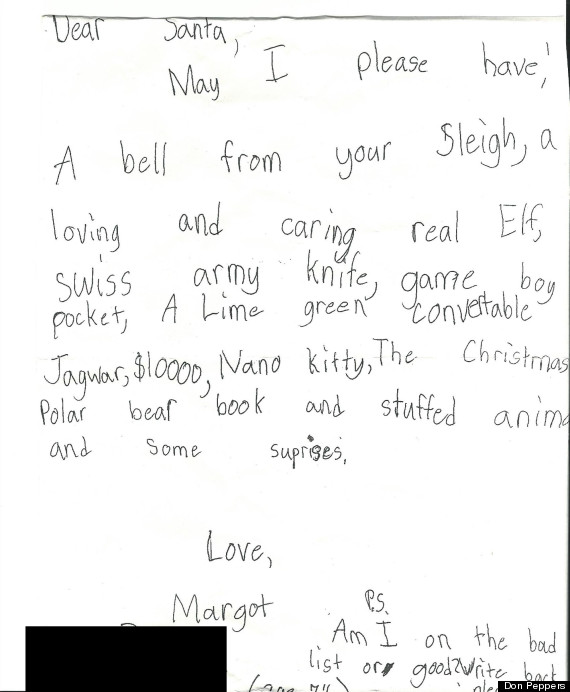 Dear Santa,
May I please have,
A bell from your Sleigh, a
loving and caring real Elf,
swiss army knife, game boy
pocket, A Lime green convertable
Jagwar, $10000, Nano kitty, The Christmas
Polar bear book and stuffed anima
and some suprises,
Love,
Margot
P.S.
Am I on the bad
list or good? Write back
Don Peppers